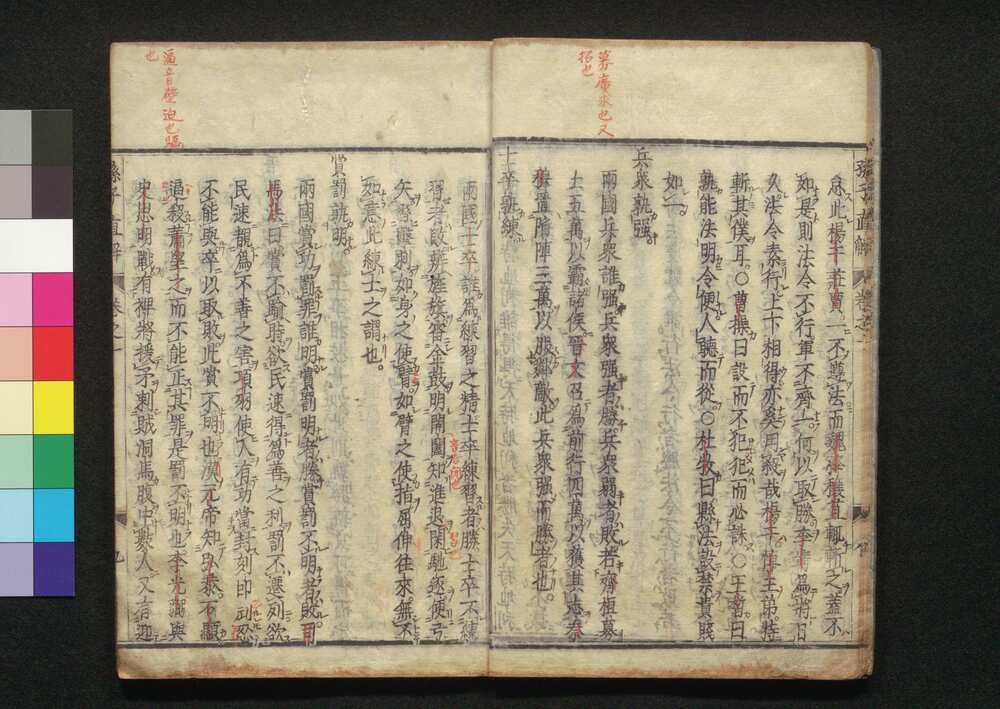 募廣求也又
招也
孫子直解
念此楊干莊賈一不遵法而魏絳穰苴輒斬之蓋不
如是則法令不行軍不齊一何以取勝李牧為將日
久法令素行上下相得亦奚用殺哉楊干晉王弟特
斬其僕耳○曹操曰設而不犯犯而必誅○王皙曰
孰能法明令便人聽而從○杜牧曰縣法設禁貴賤
如一
兵衆孰強
兩國兵衆誰强兵衆强者勝兵衆弱者敗若齊桓募
士五萬以霸諸侯晉文召為前行四萬以獲其志秦
穆置陷陣三萬以服鄰敵此兵衆强而勝者也
士卒孰練
逼音壁迫也驅
也
兩國士卒誰為練習之精士卒練習者勝士卒不練
習者敗辨旌旗審金鼓明開闔知進退閑馳逐便弓
矢習擊刺如身之使臂如臂之使指屈伸往來無不
如意此練士之謂也
賞罰孰明
兩國賞功罰罪誰明賞罰明者勝賞罰不明者敗司
馬法曰賞不踰時欲民速得為善之利罰不遷列欲
民速覩為不善之害項羽使人有功當封刻印刓忍
不能與卒以取敗此賞不明也漢元帝知弘恭石顯
逼殺蕭望之而不能正其罪是罰不明也李光弼與
史思明戰有裨將援矛刺賊洞馬腹中數人又有迎
孫子直解
卷之一
九